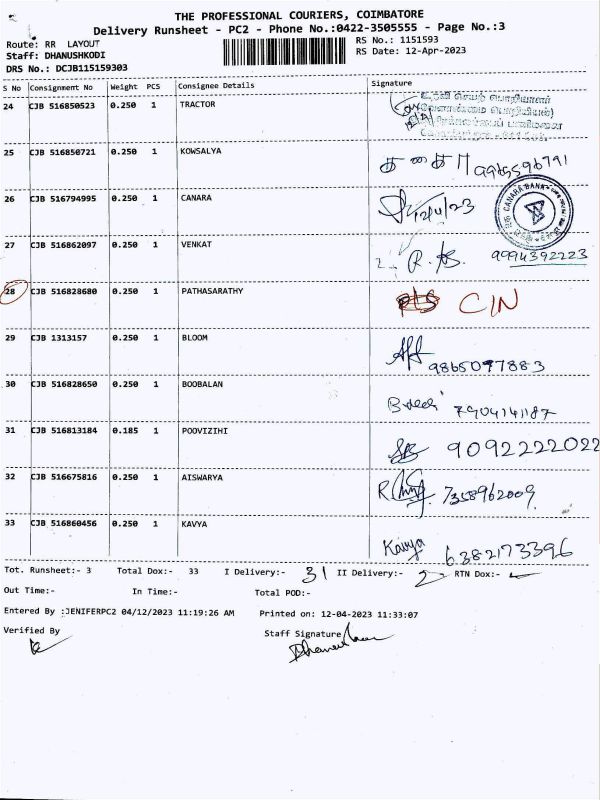 THE PROFESSIONAL COURIERS, COIMBATORE
Delivery Runsheet - PC2 - Phone No.:0422-3505555 - Page No.:3
Route: RR LAYOUT
RS No.: 1151593
Staff: DHANUSHKODI
RS Date: 12-Apr-2023
DRS No.: DCJB115159303
S No Consignment No Weight PCS Consignee Details Signature
24 CJB 516850523 0.250 1 TRACTOR
25 CJB 516850721 0.250 1 KOWSALYA
26 CJB 516794995 0.250 1 CANARA CANARA BANK
27 CJB 516862097 0.250 1 VENKAT 9994392223
28 CJB 516828680 0.250 1 PATHASARATHY CIN
29 CJB 1313157 0.250 1 BLOOM 9865097883
30 CJB 516828650 0.250 1 BOOBALAN 7904141187
31 CJB 516813184 0.185 1 POOVIZIHI 9092222022
32 CJB 516675816 0.250 1 AISWARYA 7358962009
33 CJB 516860456 0.250 1 KAVYA Kavya 6382173396
Tot. Runsheet:- 3 Total Dox:- 33 I Delivery:- 31 II Delivery:- 2 RTN Dox:-
Out Time:- In Time:- Total POD:-
Entered By :JENIFERPC2 04/12/2023 11:19:26 AM Printed on: 12-04-2023 11:33:07
Verified By Staff Signature